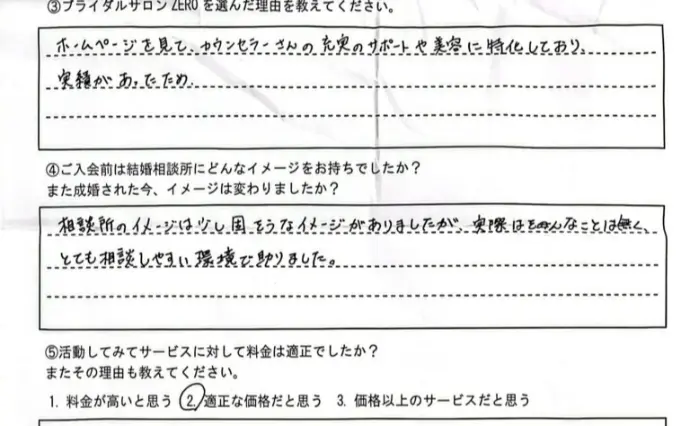 ③ブライダルサロンZEROを選んだ理由を教えてください。
ホームページを見て、カウンセラーさんの充実のサポートや美容に特化しており、
実績があったため。
④ご入会前は結婚相談所にどんなイメージをお持ちでしたか？
また成婚された今、イメージは変わりましたか？
相談所のイメージは少し固そうなイメージがありましたが、実際はそんなことは無く、
とても相談しやすい環境で助りました。
⑤活動してみてサービスに対して料金は適正でしたか？
またその理由も教えてください。
1. 料金が高いと思う 2. 適正な価格だと思う 3. 価格以上のサービスだと思う